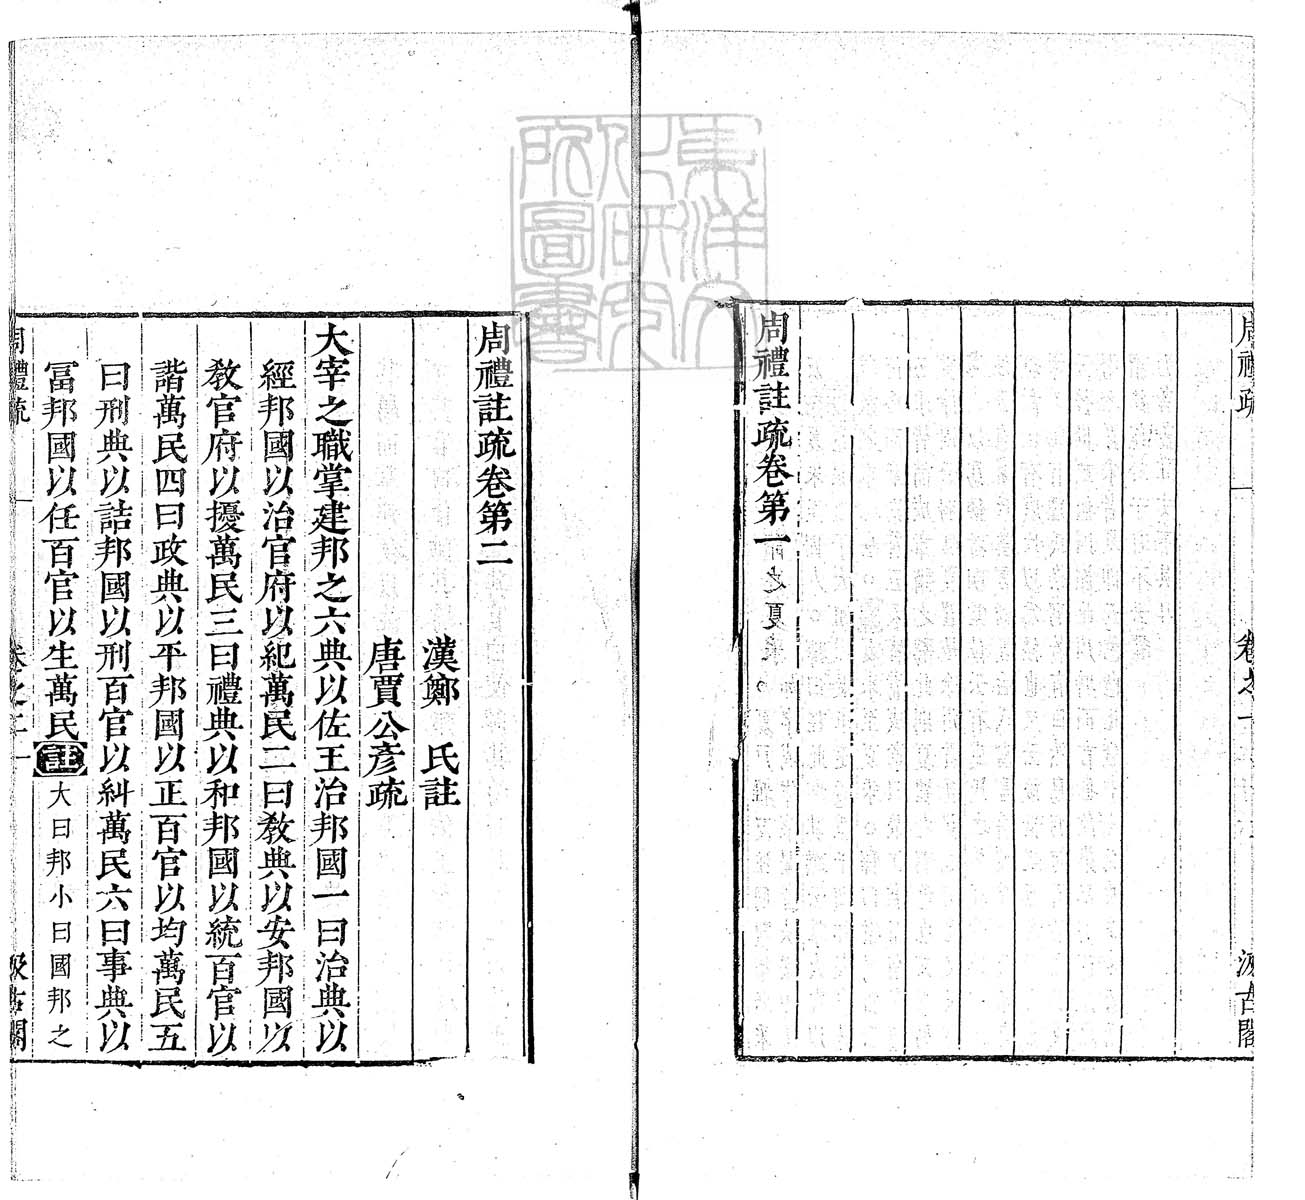 周禮疏
卷之一
汲古閣
周禮註疏卷第一
東洋文
化研究
所圖書
周禮註疏卷第二
漢鄭　氏註
唐賈公彥疏
大宰之職掌建邦之六典以佐王治邦國一曰治典以
經邦國以治官府以紀萬民二曰敎典以安邦國以
敎官府以擾萬民三曰禮典以和邦國以統百官以
諧萬民四曰政典以平邦國以正百官以均萬民五
曰刑典以詰邦國以刑百官以糾萬民六曰事典以
冨邦國以任百官以生萬民註大曰邦小曰國邦之
周禮疏
卷之二
一
汲古閣